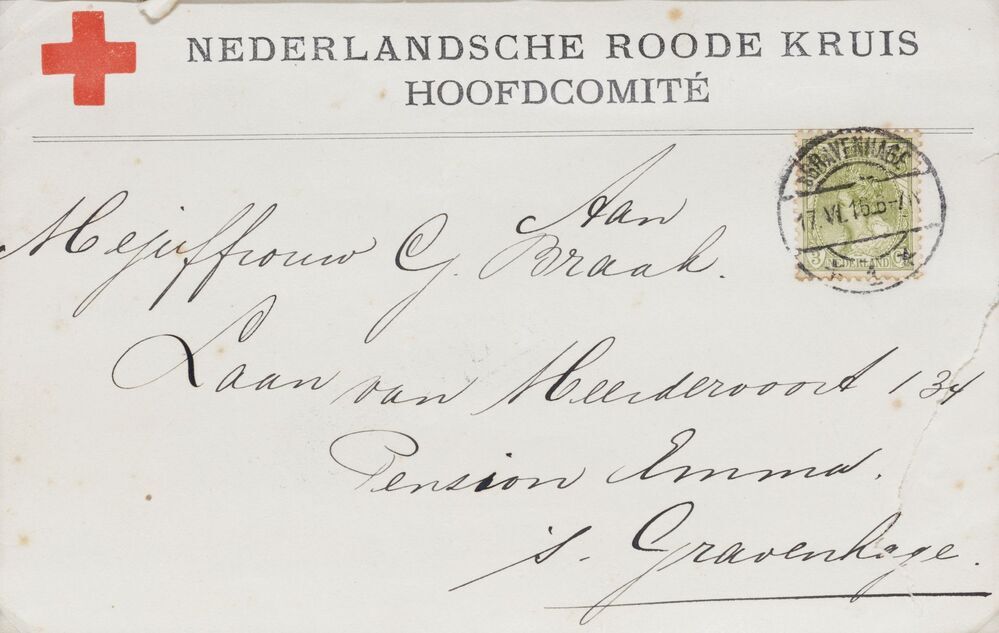 NEDERLANDSCHE ROODE KRUIS
HOOFDCOMITÉ
'SGRAVENHAGE
17.VI.15.6-7N
1
3 NEDERLAND Ct
Aan
Mejuffrouw G. Braak.
Laan van Meerdervoort 134
Pension Emma.
's. Gravenhage.